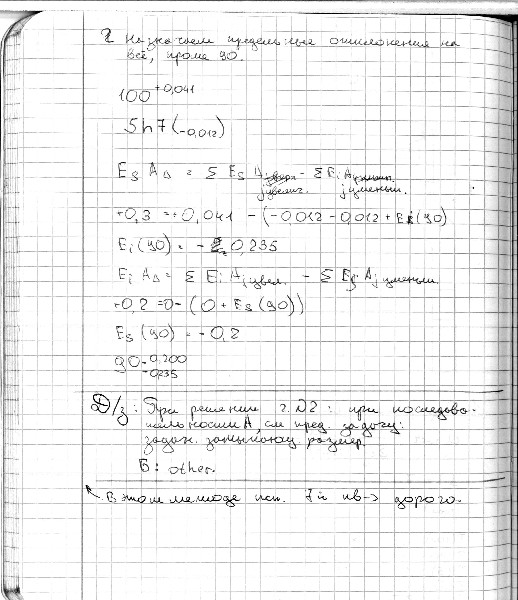 2 Назначаем предельные отклонения на
всё, кроме 90.
100 +0,041
5h7 (-0,012)
Es AΔ = Σ Es Aj увелич. - Σ Ei Aj уменьш.
+0,3 = +0,041 - (-0,012 -0,012 + Ei (90)
Ei (90) = -0,235
Ei AΔ = Σ Ei Aj увел. - Σ Es Aj уменьш
+0,2 = 0 - (0 + Es (90))
Es (90) = -0,2
90 -0,200
-0,235
Д/з: При решении z. №2: при последова-
см пред. задачу:
размер.
Б: other.
В этом методе исп. 7й кв-> дорого.